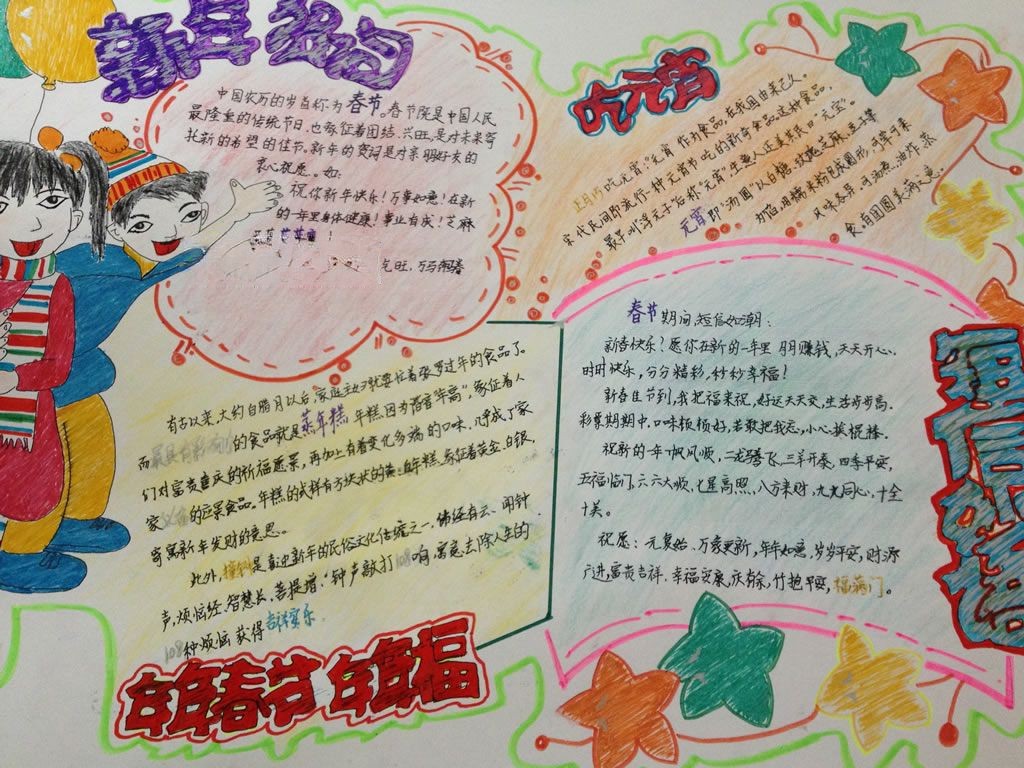 中国农历的岁首称为春节。春节既是中国人民
最隆重的传统节日,也象征着团结、兴旺,是对未来寄
托新的希望的佳节。新年的贺词是对亲朋好友的
衷心祝愿。如:
祝你新年快乐!万事如意!在新
的一年里身体健康!事业有成!芝麻
旺,万马奔腾
吃元宵
正月15吃元宵,"元宵"作为食品,在我国由来已久。
宋代民间即流行一种元宵节吃的新奇食品。这种食品,
最早叫浮元子后称"元宵",生意人还美其名曰"元宝"。
元宵即"汤圆"以白糖、玫瑰、芝麻、豆沙等
为馅,用糯米粉包成圆形,可荤可素
风味各异。可汤煮、油炸、蒸
食,有团圆美满之意。
有古以来,大约自腊月以后,家庭主妇就要忙着张罗过年的食品了。
而的食品就是蒸年糕,年糕因为谐音"年高",象征着人
们对富贵喜庆的祈福愿景,再加上有着变化多端的口味,几乎成了家
家的应景食品。年糕的式样有方块状的黄、白年糕,象征着黄金、白银,
寄寓新年发财的意思。
此外,撞钟是喜迎新年的民俗文化传统之一,佛经有云、闻钟
声,烦恼经、智慧长、菩提增,"钟声敲打108响,寓意去除人生的
108种烦恼获得吉祥安乐.
年年春节 年年福
春节期间,短信如潮:
新春快乐?愿你在新的一年里,月月赚钱,天天开心,
时时快乐,分分精彩,秒秒幸福!
新春佳节到,我把福来祝,好运天天交,生活步步高.
彩票期期中,口味顿顿好,若敢把我忘,小心挨棍棒.
祝新的一年一帆风顺,二龙腾飞,三羊开泰,四季平安,
五福临门,六六大顺,七星高照,八方来财,九九同心,十全
十美。
祝愿:元复始、万象更新,年年如意,岁岁平安,财源
广进,富贵吉祥、幸福安康,庆有余,竹抱平安,福满门。